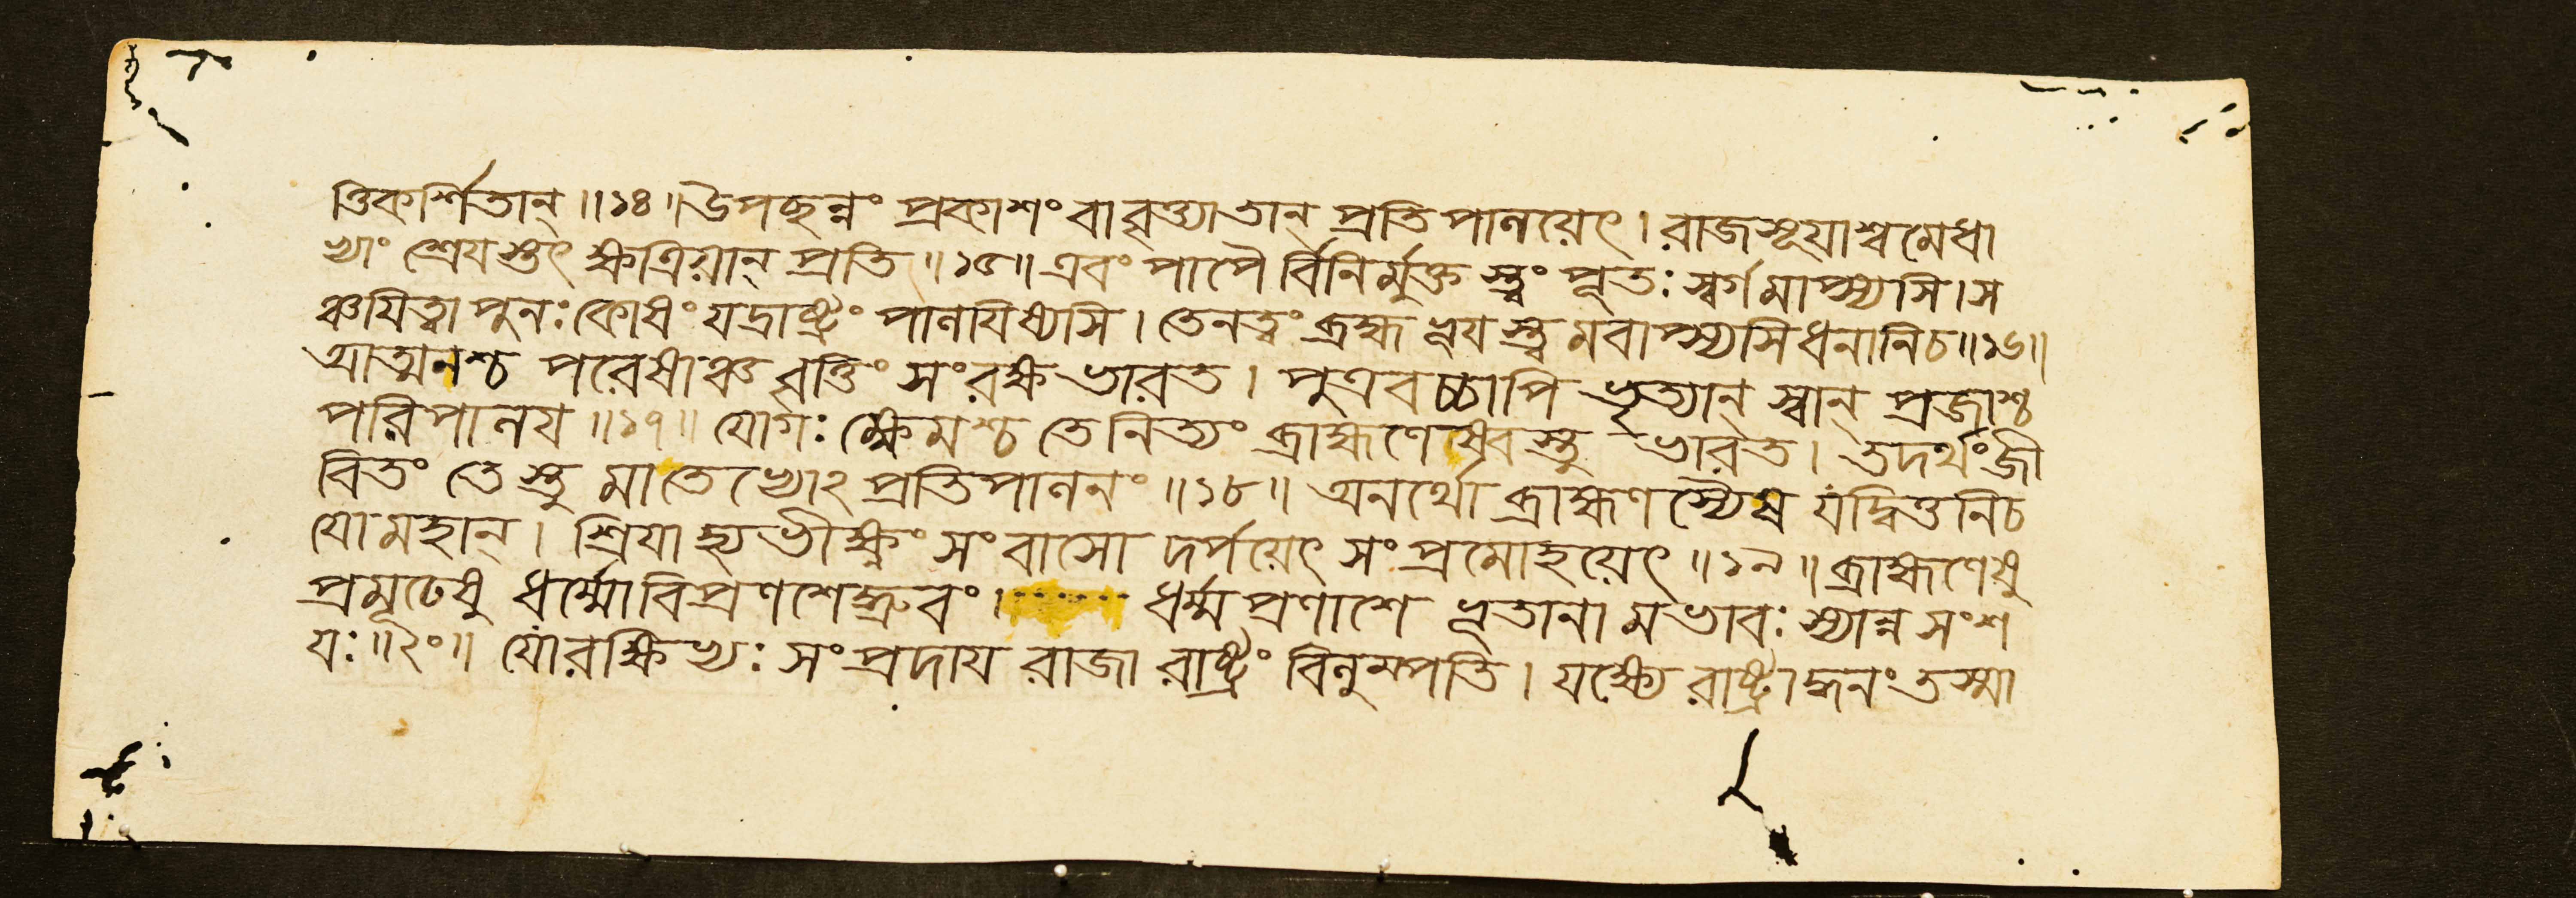 ত্তিকর্শিতান্॥১৪॥উপছন্নং প্রকাশং বাবৃত্ত্যাতান্ প্রতিপালয়েৎ। রাজসূয়াশ্বমেধা
ভ্যাং শ্রেযস্তৎ ক্ষত্রিয়ান্ প্রতি॥১৫॥এবং পাপৈর্বিনির্মুক্ত স্ত্বং পূতঃ স্বর্গমাপ্স্যসি। স
ঞ্চয়িত্বা পুনঃকোষং যদ্রাষ্ট্রং পালযিষ্যসি। তেনত্বং ব্রহ্মভূযস্ত্বমবাপ্স্যসিধনানিচ॥১৬॥
আত্মনশ্চ পরেষাঞ্চ বৃত্তিং সংরক্ষ ভারত। পুত্রবচ্চাপি ভৃত্যান্ স্বান্ প্রজাশ্চ
পরিপালয॥১৭॥ যোগঃ ক্ষেমশ্চ তেনিত্যং ব্রাহ্মণেষ্বস্তু ভারত। তদর্থংজী
বিতং তেস্তু মাতেভ্যোঽপ্রতিপালনং॥১৮॥ অনর্থো ব্রাহ্মণস্যৈষ যদ্বিত্তনিচ
যোমহান্। শ্রিযাহ্যভীক্ষ্ণং সংবাসো দর্পয়েৎ সংপ্রমোহয়েৎ॥১৯॥ ব্রাহ্মণেষু
প্রমূঢেষু ধর্ম্মোবিপ্রণশেদ্ধ্রুবং। ধর্ম্মপ্রণাশে ভূতানামভাবঃ স্যান্ন সংশ
যঃ॥২০॥ যোরক্ষিভ্যঃ সংপ্রদায রাজা রাষ্ট্রং বিলুম্পতি। যক্ষ্যে রাষ্ট্রাদ্ধনং তস্মা